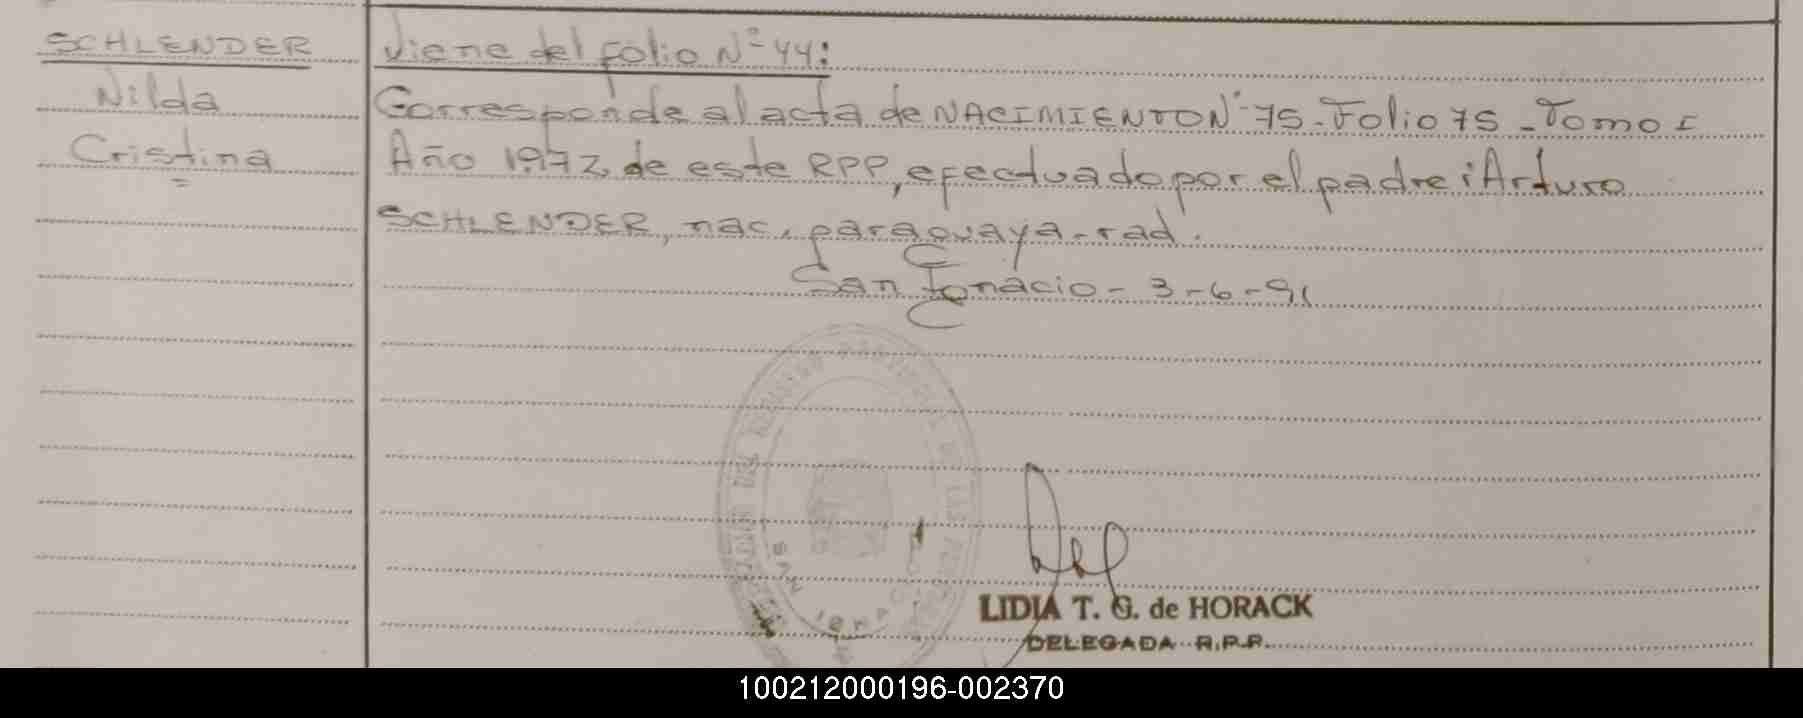 SCHLENDER
Nilda
Cristina
Viene del folio Nº 44:
Corresponde al acta de NACIMIENTO Nº 75 - Folio 75 - Tomo I
Año 1972, de este RPP, efectuado por el padre: Arturo
SCHLENDER, nac. paraguaya - rad.
San Ignacio - 3-6-91
SAN IGNACIO
LIDIA T. G. de HORACK
DELEGADA R.P.P.
100212000196-002370